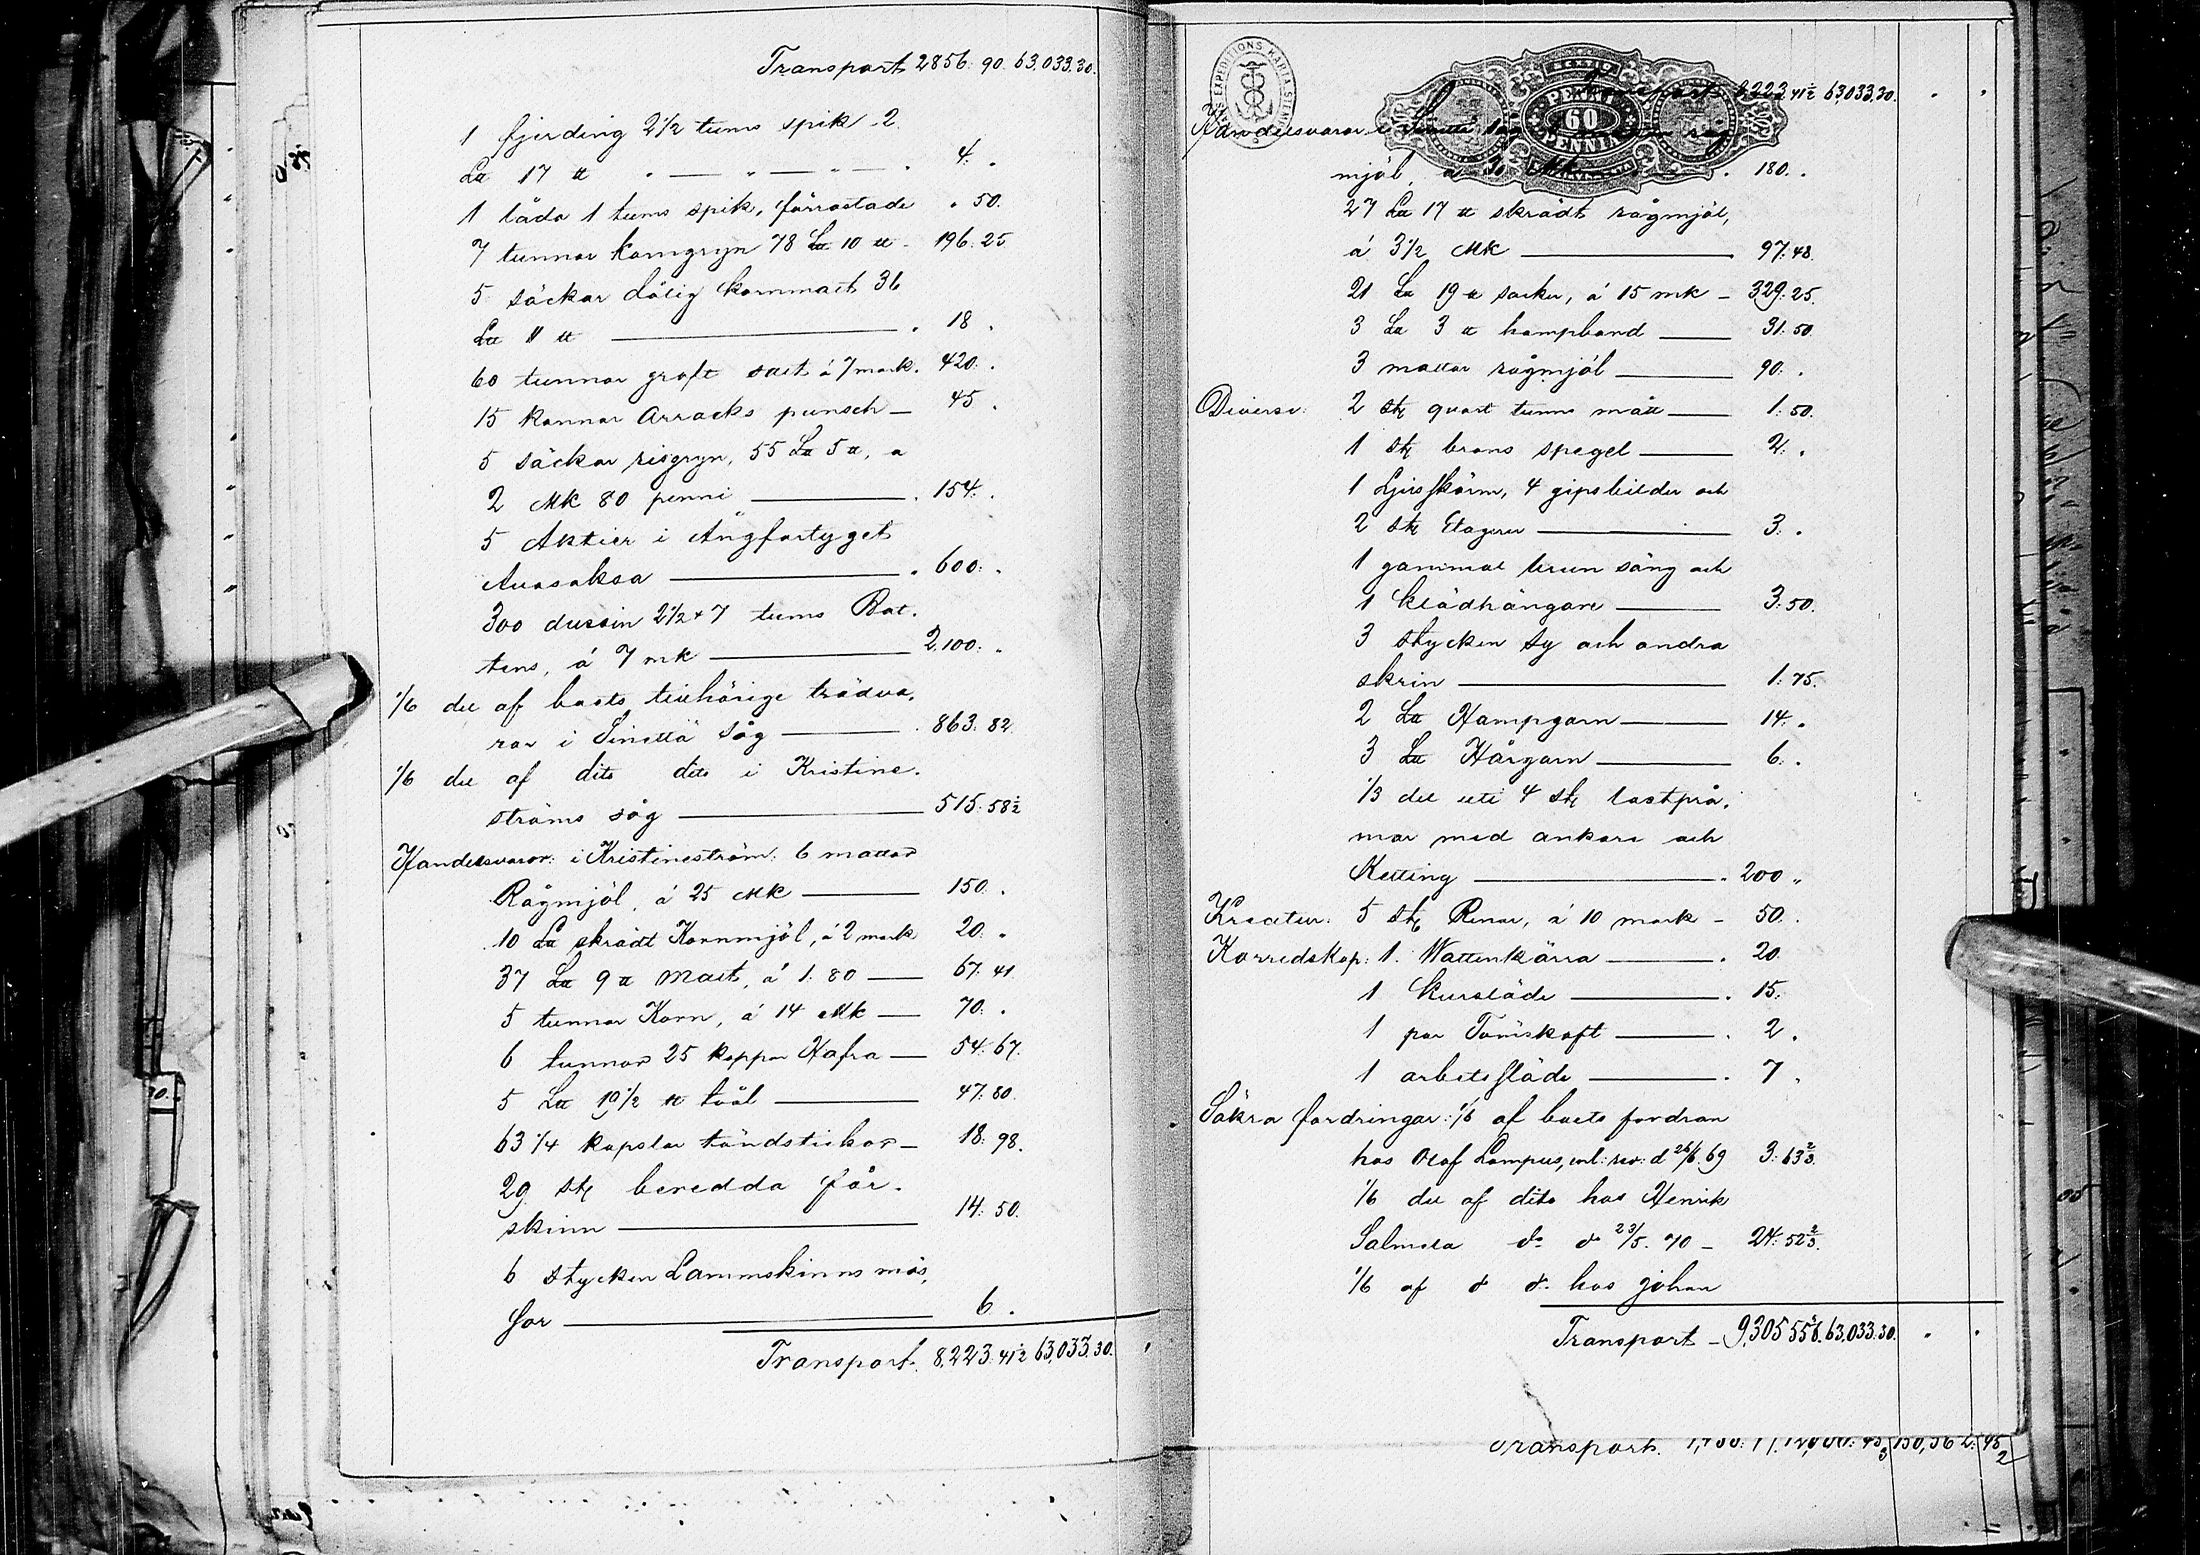 Transport 2856. 90. 63,033.30.
1 fjerding 2 1/2 tums spik 2
La 17 ℔ " — " — " — " 4. .
1 låda 1 tums spik, förrostade . 50.
7 tunnor korngryn 78 La 10 ℔ - 196. 25
5 säckar dålig kornmalt 36
La 11 ℔ — . 18 .
60 tunnor groft salt á 7 mark. 420. .
15 kannor Arracks punsch — 45 .
5 säckar risgryn, 55 La 5 ℔, a
2 Mk 80 penni — . 154. .
5 Aktier i Ångfartyget
Avasaksa — . 600. .
300 dussin 2 1/2 + 7 tums Bat-
tens, á 7 mk — 2,100. .
1/6 del af boets tillhörige trädva-
ror i Sinettä såg — . 863. 82.
1/6 del af dito dito i Kristine-
ströms såg — 515. 58 1/2
Handelsvaror: i Kristineström: 6 mattor
Rågmjöl, á 25 Mk — 150. .
10 La skrädt Kornmjöl, á 2 mark 20. .
37 La 9 ℔ Malt, á 1. 80 — 67. 41
5 tunnor Korn, á 14 Mk — 70. .
6 tunnor 25 kappar Hafra — 54. 67.
5 La 19 1/2 ℔ tvål — 47. 80.
63 1/4 kapslar tändstickor — 18. 98.
29 stk beredda får-
skinn — 14. 50.
6 stycken Lammskinns mös-
sor — 6 .
Transport. 8,223. 41 1/2 63,033.30.
EXPEDITIONS KARTA
60
PENNI
PENNIÄ
Transport 8,223 41 1/2 63,033.30. . .
Handelsvaror i Sinettä såg 6 mattor råg
mjöl, a 30 Mk — . 180. .
27 La 17 ℔ skrädt rågmjöl,
á 3 1/2 Mk — 97. 48.
21 La 19 ℔ socker, á 15 mk — 329. 25.
3 La 3 ℔ hampband — 31. 50
3 mattor rågmjöl — 90. .
Diverse: 2 stk quart tunns mått — 1. 50.
1 stk brons spegel — 2. .
1 Ljusskärm, 4 gipsbilder och
2 stk Etagerer — 3. .
1 gammal brun säng och
1 klädhängare — 3. 50.
3 stycken sy och andra
skrin — 1. 75.
2 La Hampgarn — 14. .
3 La Hårgarn — 6. .
1/3 del uti 4 stk lastprå-
mar med ankare och
Ketting — . 200 "
Kreatur: 5 stk Renar, á 10 mark — 50. .
Körredskap: 1 Wattenkärra — . 20.
1 kursläde — . 15.
1 par Tömskaft — . 2 .
1 arbetssläde — . 7 .
Säkra fordringar: 1/6 af boets fordran
hos Olof Lampus, enl: rev: d 26/6. 69 3. 63 2/3.
1/6 del af dito hos Henrik
Salmela do do 23/5. 70 — 24. 52 2/3.
1/6 af do do hos Johan
Transport — 9,305 55 5/6. 63,033.30. . .
Transport.